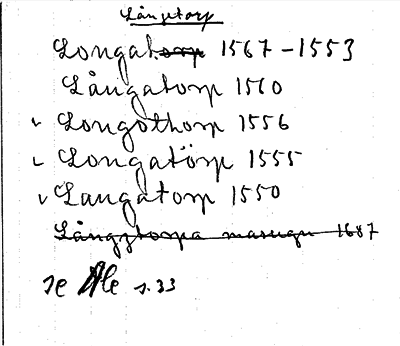 Långtorp
Longatorp 1567-1553
Långatorp 1560
Longothorp 1556
Longatörp 1555
Langatorp 1550
Långztorpa masugn 1687
se Ale s.33